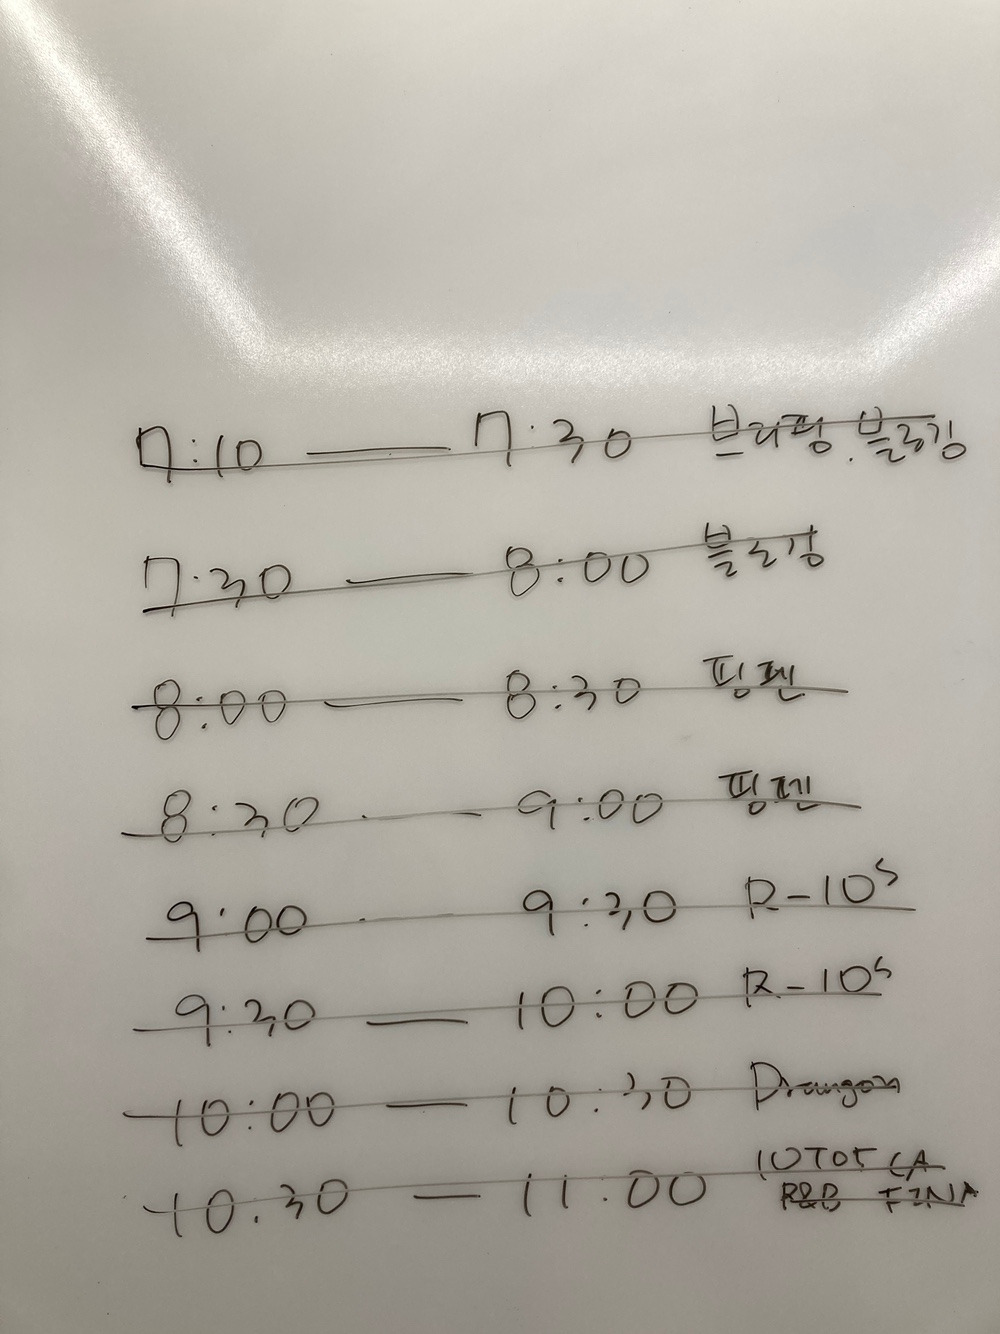 7:10 — 7:30 브리핑. 블로킹
7:30 — 8:00 블로킹
8:00 — 8:30 핑펜
8:30 — 9:00 핑펜
9:00 — 9:30 R-10s
9:30 — 10:00 R-10s
10:00 — 10:30 Drangon
10:30 — 11:00
R&B